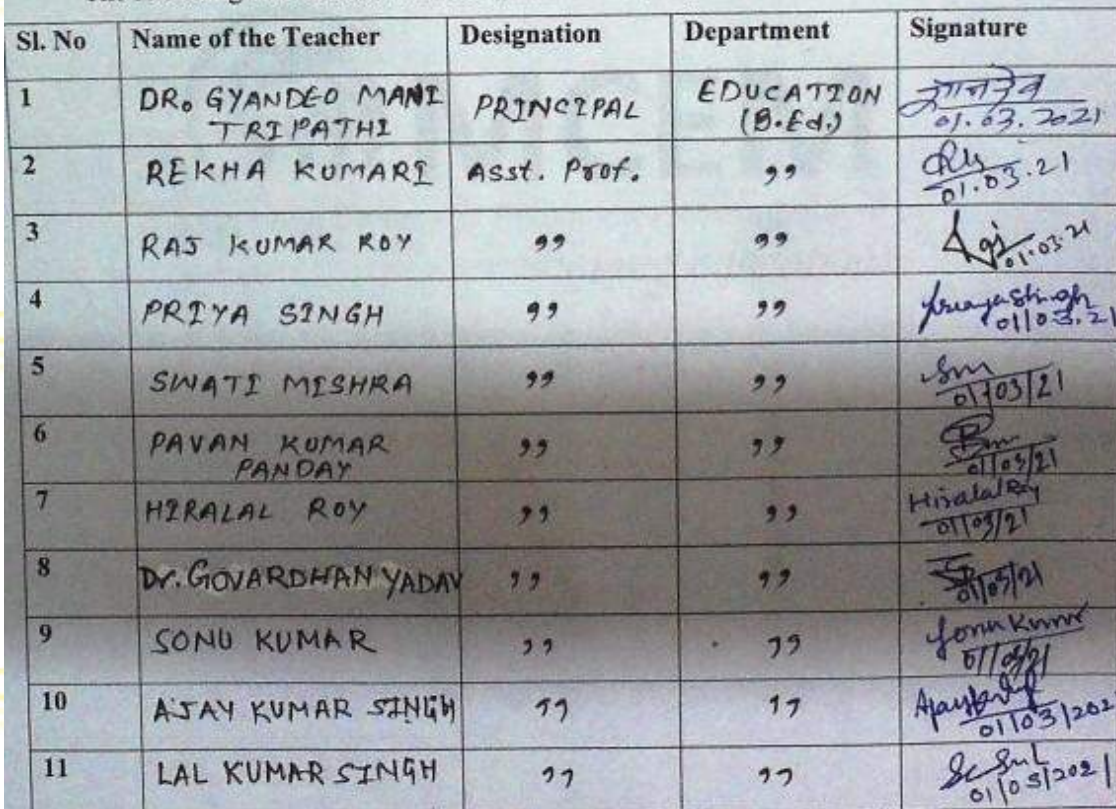 Sl. No Name of the Teacher Designation Department Signature
1 DR. GYANDEO MANI PRINCIPAL EDUCATION ज्ञानदेव
TRIPATHI (B.Ed.) 01.03.2021
2 REKHA KUMARI Asst. Prof. ,,
01.03.21
3 RAJ KUMAR ROY ,, ,,
01.03.21
4 PRIYA SINGH ,, ,, Priya Singh
01/03.21
5 SWATI MISHRA ,, ,,
01/03/21
6 PAVAN KUMAR ,, ,,
PANDAY 01/03/21
7 HIRALAL ROY ,, ,, Hiralal Roy
01/03/21
8 Dr. GOVARDHAN YADAV ,, ,,
01/03/21
9 SONU KUMAR ,, ,, Sonu Kumar
01/03/21
10 AJAY KUMAR SINGH ,, ,,
01/03/202
11 LAL KUMAR SINGH ,, ,,
01/03/2021